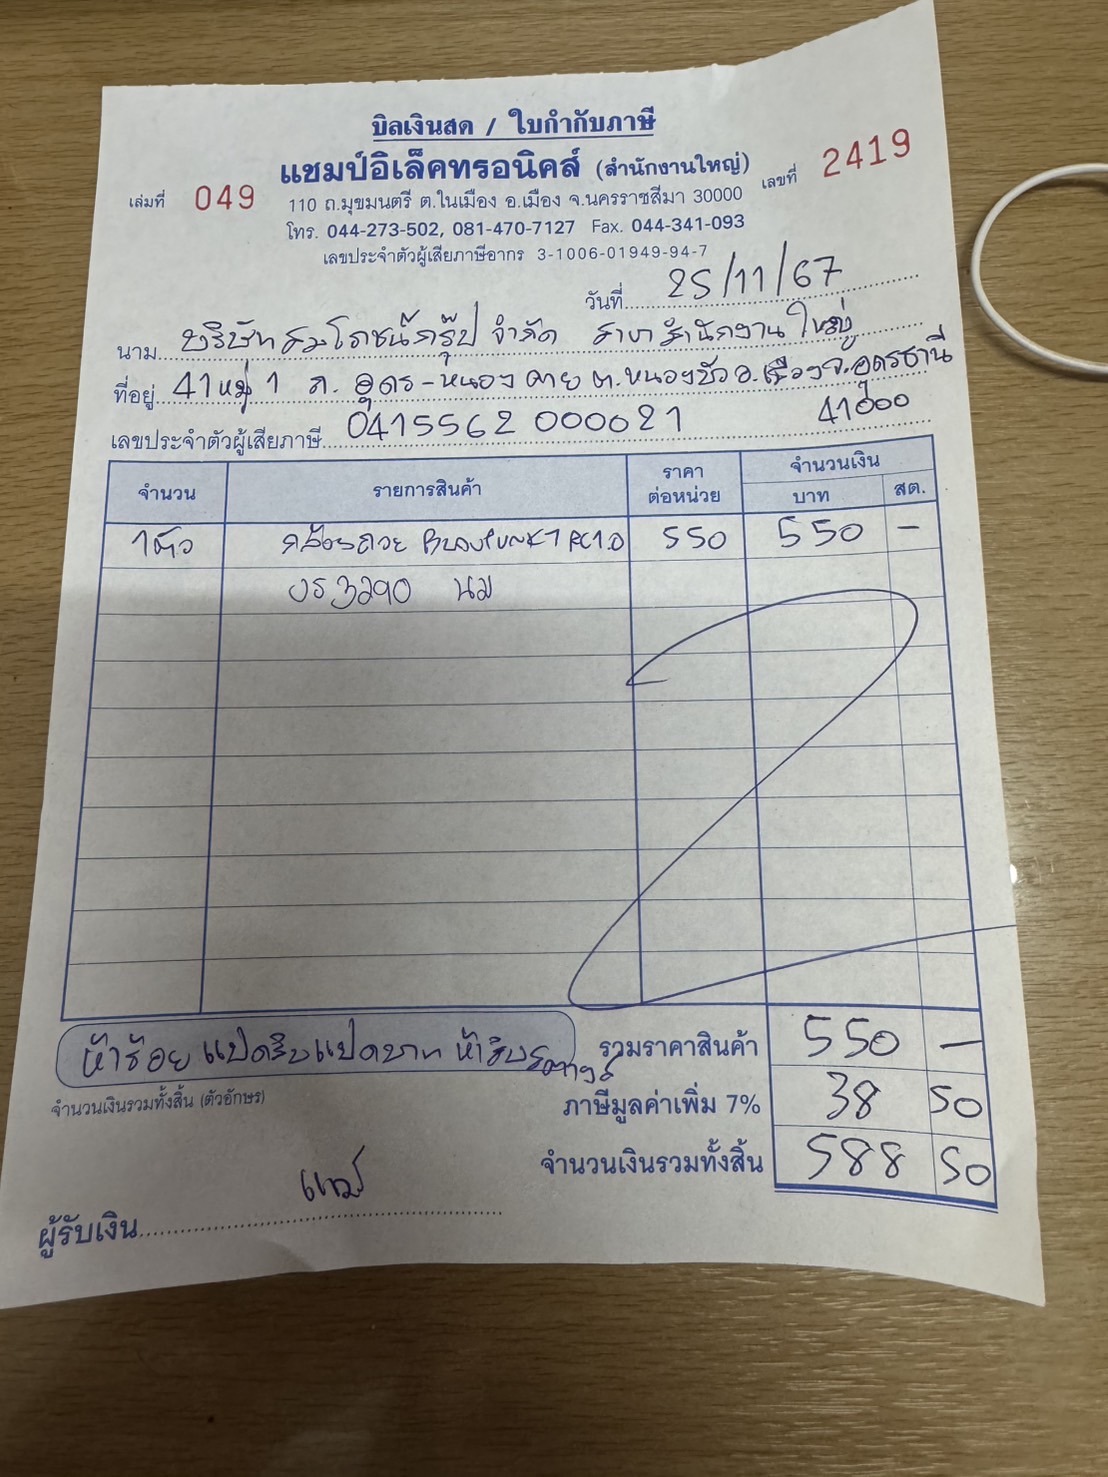 บิลเงินสด / ใบกำกับภาษี
แชมป์อิเล็คทรอนิคส์ (สำนักงานใหญ่)
เล่มที่ 049 เลขที่ 2419
110 ถ.มุขมนตรี ต.ในเมือง อ.เมือง จ.นครราชสีมา 30000
โทร. 044-273-502, 081-470-7127 Fax. 044-341-093
เลขประจำตัวผู้เสียภาษีอากร 3-1006-01949-94-7
วันที่ 25/11/67
นาม บริษัท สมโภชน์กรุ๊ป จำกัด สาขา สำนักงานใหญ่
ที่อยู่ 41 หมู่ 1 ถ. อุดร-หนองคาย ต.หนองบัว อ.เมือง จ.อุดรธานี
41000
เลขประจำตัวผู้เสียภาษี 0415562000021
จำนวน รายการสินค้า ราคาต่อหน่วย จำนวนเงิน
บาท สต.
1 ตัว กล้องถวย 550 550 -
3290 นม
รวมราคาสินค้า 550 -
ห้าร้อยแปดสิบแปดบาท ห้าสิบสตางค์
จำนวนเงินรวมทั้งสิ้น (ตัวอักษร)
ภาษีมูลค่าเพิ่ม 7% 38 50
จำนวนเงินรวมทั้งสิ้น 588 50
ผู้รับเงิน